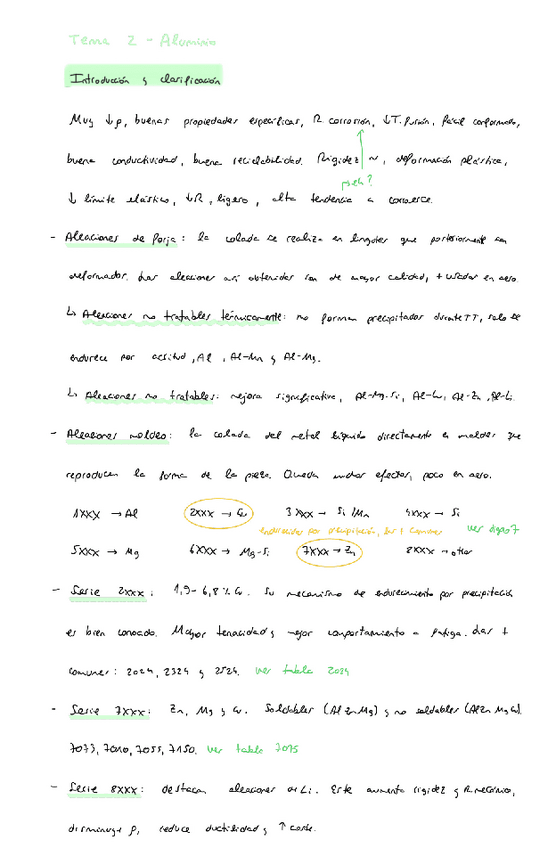 Tema 2 - Aluminio
Introducción y clasificación
Muy ↓ρ, buenas propiedades específicas, R corrosión, ↓T. fusión, fácil conformado,
buena conductividad, buena reciclabilidad. Rigidez ~, deformación plástica,
meh?
↓ límite elástico, ↓R, ligero, alta tendencia a corroerse.
- Aleaciones de forja: la colada se realiza en lingotes que posteriormente son
deformados. Las aleaciones así obtenidas son de mayor calidad, + usadas en aero.
↳ Aleaciones no tratables térmicamente: no forman precipitados durante TT, solo se
endurece por acritud, Al, Al-Mn y Al-Mg.
↳ Aleaciones no tratables: mejora significativa, Al-Mg-Si, Al-Cu, Al-Zn, Al-Li.
- Aleaciones moldeo: la colada del metal líquido directamente en moldes que
reproducen la forma de la pieza. Quedan defectos, poco en aero.
1XXX → Al 2XXX → Cu 3XXX → Si /Mn 4XXX → Si
endurecidas por precipitación, las + comunes ver diapo 7
5XXX → Mg 6XXX → Mg-Si 7XXX → Zn 8XXX → otros
- Serie 2XXX: 1,9-6,8 % Cu. Su mecanismo de endurecimiento por precipitación
es bien conocido. Mayor tenacidad y mejor comportamiento a fatiga. Las +
comunes: 2024, 2324 y 2524. ver tabla 2024
- Serie 7XXX: Zn, Mg y Cu. Soldables (Al Zn Mg) y no soldables (Al Zn Mg Cu).
7075, 7010, 7055, 7150. ver tabla 7075
- Serie 8XXX: destacan aleaciones de Li. Este aumenta rigidez y R mecánica,
disminuye ρ, reduce ductilidad y ↑ coste.